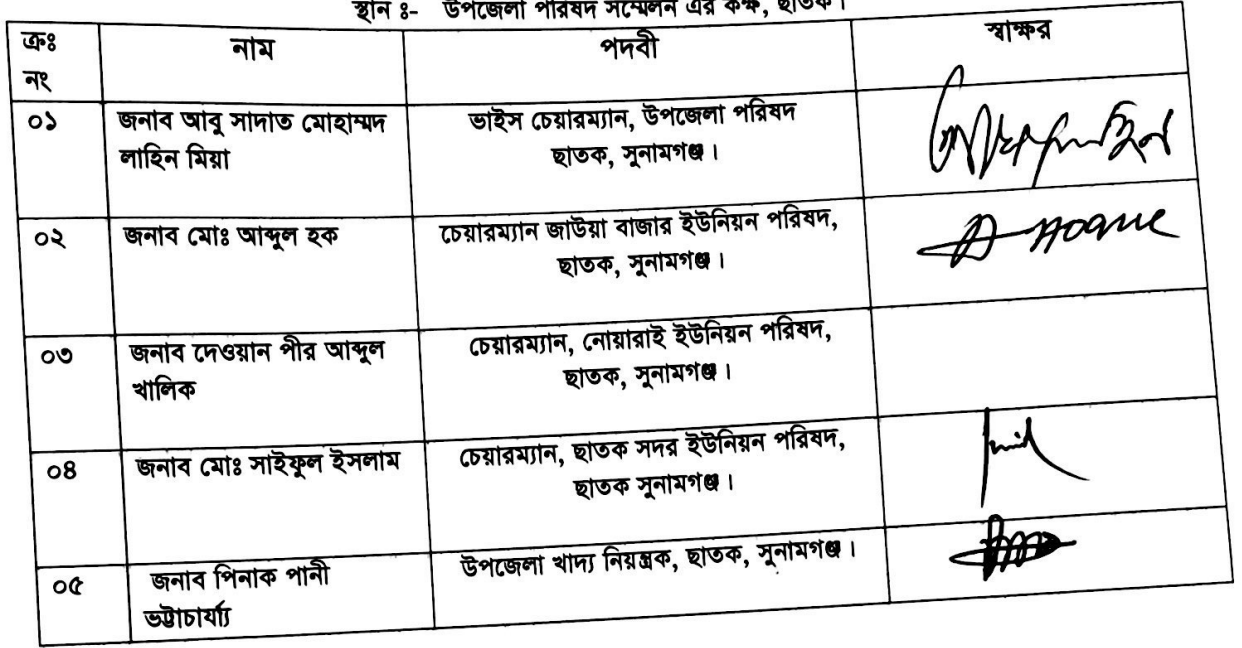 স্থান ঃ- উপজেলা পরিষদ সম্মেলন এর কক্ষ, ছাতক।
ক্রঃ নং নাম পদবী স্বাক্ষর
০১ জনাব আবু সাদাত মোহাম্মদ লাহিন মিয়া ভাইস চেয়ারম্যান, উপজেলা পরিষদ ছাতক, সুনামগঞ্জ।
০২ জনাব মোঃ আব্দুল হক চেয়ারম্যান জাউয়া বাজার ইউনিয়ন পরিষদ, ছাতক, সুনামগঞ্জ। A Hoque
০৩ জনাব দেওয়ান পীর আব্দুল খালিক চেয়ারম্যান, নোয়ারাই ইউনিয়ন পরিষদ, ছাতক, সুনামগঞ্জ।
০৪ জনাব মোঃ সাইফুল ইসলাম চেয়ারম্যান, ছাতক সদর ইউনিয়ন পরিষদ, ছাতক সুনামগঞ্জ।
০৫ জনাব পিনাক পানী ভট্টাচার্য্য উপজেলা খাদ্য নিয়ন্ত্রক, ছাতক, সুনামগঞ্জ।